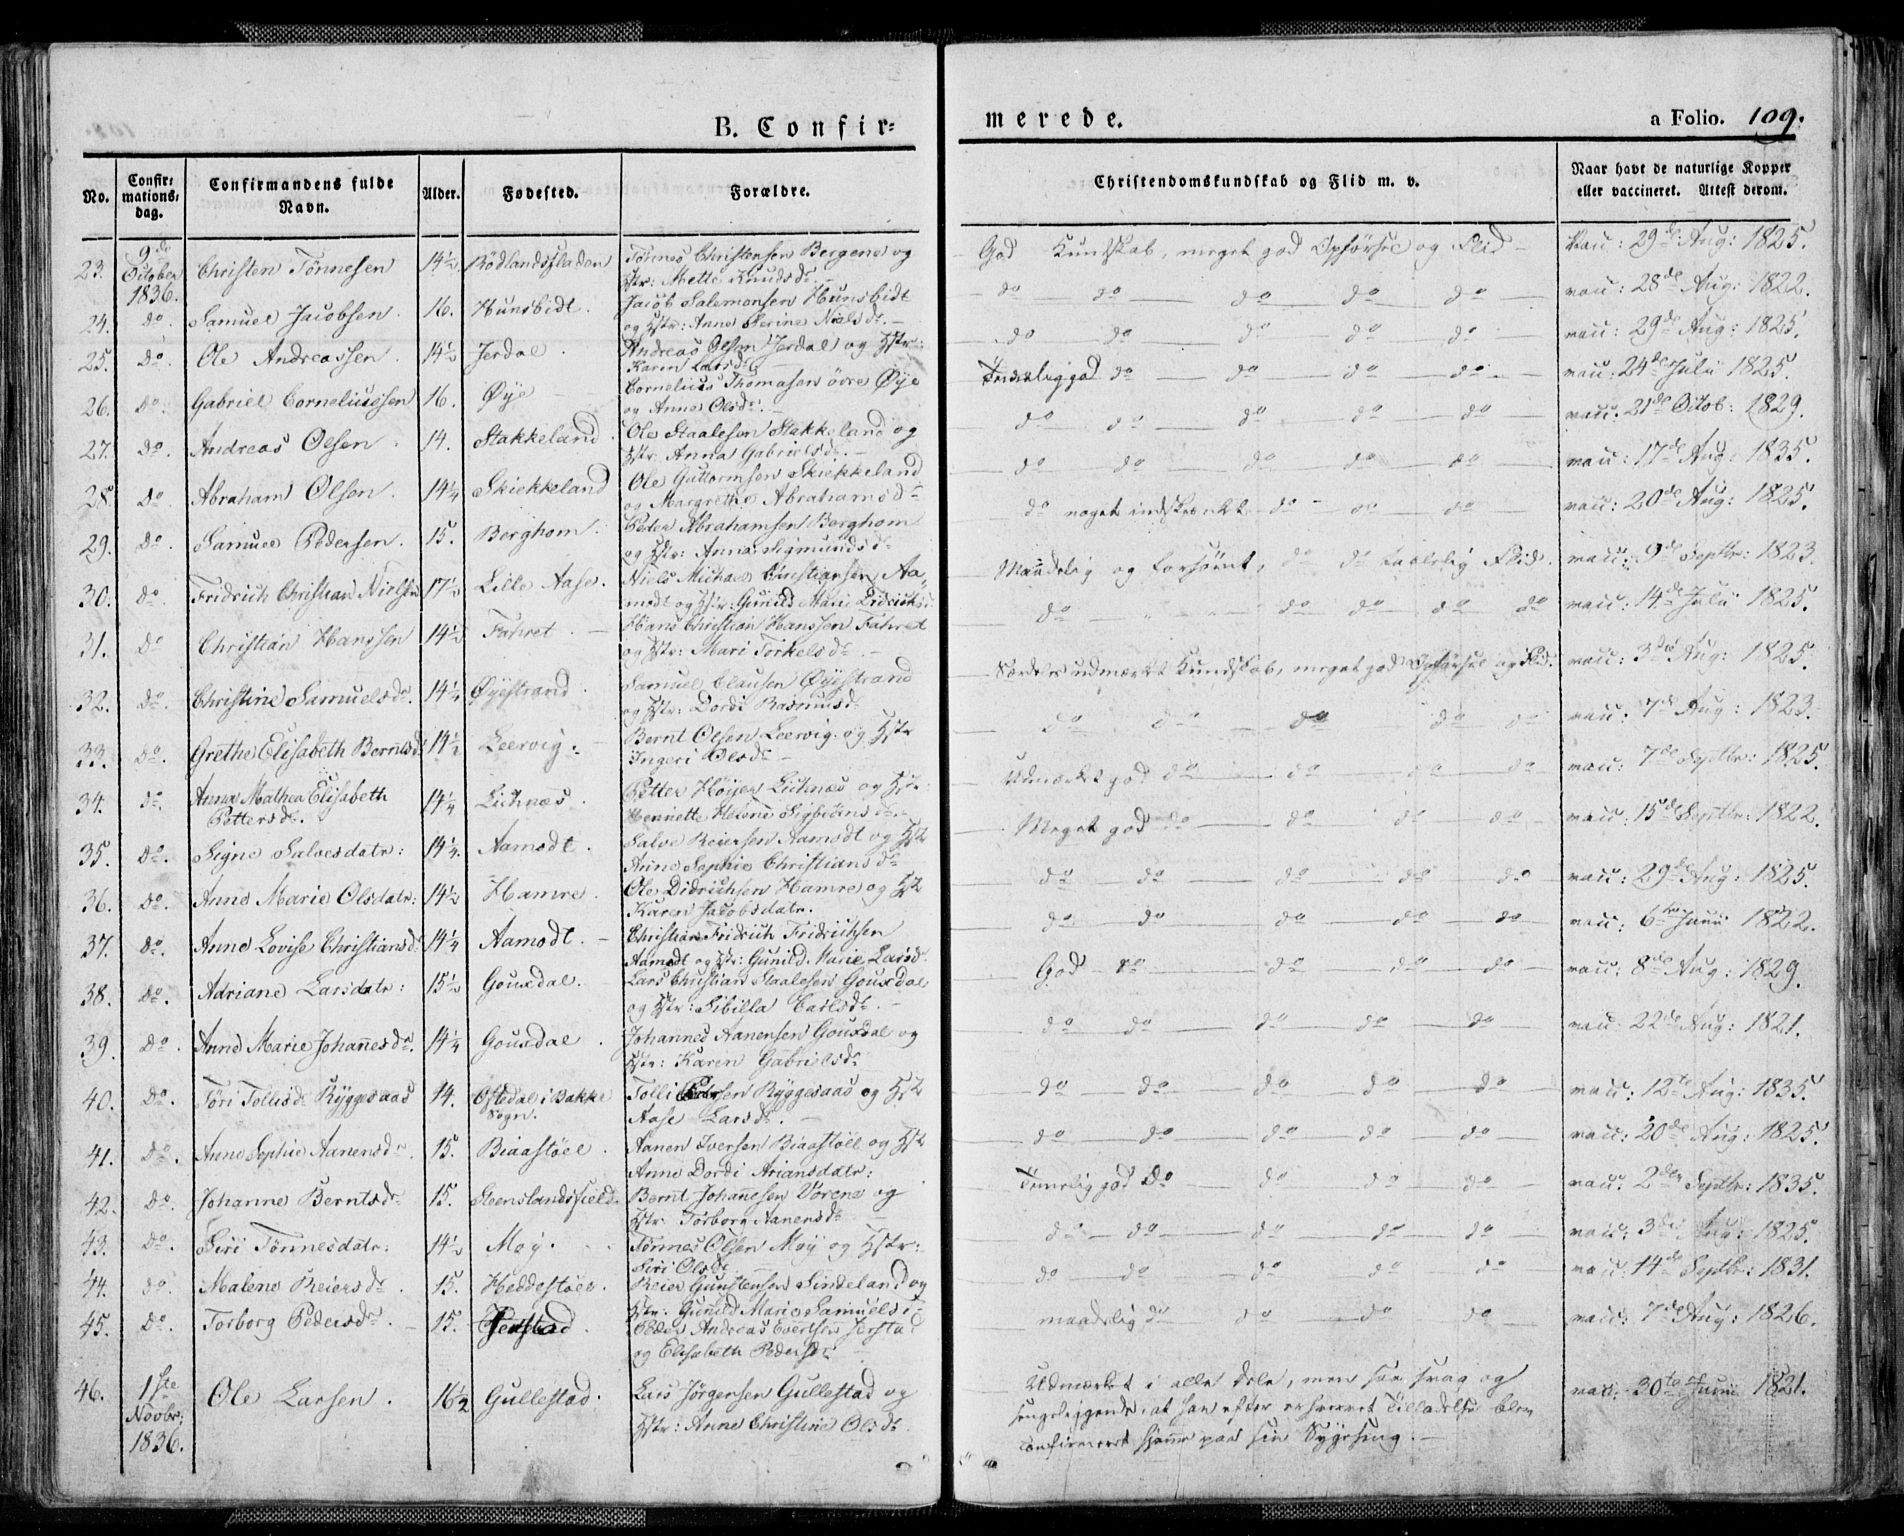 B. Confir=
merede.
a Folio. 109.
No.
Confir=
mations=
dag.
Confirmandens fulde
Navn.
Alder.
Fødested.
Forældre.
Christendomskundskab og Flid m. v.
Naar havt de naturlige Kopper
eller vaccineret. Attest derom.
23. 9de October 1836. Christen Tönnesen 14½ Rödlandsfladen
Tönnes Christensen Bergene og
Hstr: Mette Knudsdr
God Kundskab, meget god Opförsel og Flid
vacc: 29de Aug: 1825.
24. do. Samuel Jacobsen. 16. Hunsbidt.
Jacob Salemonsen Hunsbidt
og Hstr: Anne Serine Nielsdr.
do do do do do
vacc: 28de Aug: 1822.
25. Do. Ole Andreassen. 14½ Jerdal.
Andreas Olsen Jerdal og Hstr:
Karen Larsdr
do do do do do
vacc: 29de Aug: 1825.
26. Do. Gabriel Corneliussen 16. Øye
Cornelius Thomasen övre Øye
og Anne Olsdr.
Temelig god do do do do
vacc: 24de Julii 1825.
27. Do. Andreas Olsen. 14. Stakkeland.
Ole Staalesen Stakkeland og
Hstr: Anna Gabrielsdr.
do do do do do
vacc: 21de Octob: 1829.
28. Do Abraham Olsen. 14¼ Skiekkeland
Ole Guttormsen Skiekkeland
og Margrethe Abrahamsdr
do do do do do
vacc: 17de Aug: 1835.
29. Do. Samuel Pedersen. 15. Berghom.
Peder Abrahamsen Berghom
og Hstr: Anna Sigmundsdr
do noget indskrænket do do do
vacc: 20de Aug: 1825.
30. Do. Fridrich Christian Nielsen 17½ Lille Aase.
Niels Michael Christiansen Aa-
modt og Hstr: Gunild Marie Didrichsd
Maadelig og forsömt, do do taalelig Flid.
vacc: 9de Septbr: 1823.
31. Do Christian Hanssen 14½ Fahret.
Hans Christian Hanssen Fahret
og Hstr: Mari Torkelsdr.
do do do do do
vacc: 14de Julii 1825.
32. Do. Christine Samuelsdr. 14¼ Øyestrand.
Samuel Clausen Øyestrand
og Hstr: Dordi Rasmusdr
Særdeles udmærket Kundskab, meget god Opförsel og Flid.
vacc: 3die Aug: 1825.
33. Do. Grethe Elisabeth Berntsd: 14½ Leervig.
Bernt Olsen Leervig og Hstr
Ingeri Olsdr
do do do do do
vacc: 7de Aug: 1823.
34. do. Anna Mathea Elisabeth
Pettersdr. 14¼ Lichnæs.
Petter Höyer Lichnæs og Hstr:
Hennette Helene Sigbiörnsdr.
Udmærket god do do do do
vacc: 7de Septbr: 1825.
35. Do. Signe Salvesdatr: 14¼. Aamodt.
Salve Reiersen Aamodt og Hstr
Anne Sophie Christiansdr
Meget god do do do do
vacc: 15de Septbr: 1822.
36. Do. Anne Marie Olsdatr: 14½ Hamre.
Ole Didrichsen Hamre og Hstr
Karen Jacobsdatr.
do do do do do
vacc: 29de Aug: 1825.
37. Do. Anne Lovise Christiansd: 14¼ Aamodt.
Christian Fridrich Fridrichsen
Aamodt og Hstr: Gunild Marie Larsd.
do do do do do
vacc: 6te Junii 1822.
38. Do. Adriane Larsdatr: 15½ Gousdal.
Lars Christian Staalesen Gousdal
og Hstr: Sibilla Carlsdr.
God do do do do
vacc: 8de Aug: 1829.
39. Do. Anne Marie Johannesdr. 14¼ Gousdal.
Johannes Aanensen Gousdal og
Hstr: Karen Gabrielsdr
do do do do do
vacc: 22de Aug: 1821.
40. Do. Töri Tollisdr Ryggesaas 14. Ofstedal i Bakke
Sogn.
Tolli Pedersen Ryggesaas og Hstr
Aase Larsdr.
do do do do do
vacc: 12te Aug: 1835.
41. Do. Anne Sophie Aanensdr. 15. Biaastöel.
Aanen Iversen Biaastöel og Hstr
Anne Dordi Ariansdatr:
do do do do do
vacc: 20de Aug: 1825.
42. Do. Johanne Berntsdr 15. Steenslandsfield.
Bernt Johannesen Vorene og
Hstr Torborg Aanensdr
Temelig god do do do do
vacc: 2den Septbr: 1835.
43. Do. Siri Tönnesdatr: 14½ Moy.
Tönnes Olsen Moy og Hstr:
Siri Olsdr
do do do do do
vacc: 3die Aug: 1825.
44. do. Malene Reiersdr. 15. Heddestöel.
Reier Gunstensen Sindeland og
Hstr: Gunild Marie Samuelsd
do do do do do
vacc: 14de Septbr: 1831.
45. Do. Torborg Pedersdr. 15. Jerstad.
Peder Andreas Evertsen Jerstad
og Elisabeth Pedersdr
maadelig do do do do
vacc: 7de Aug: 1826.
46. 1ste Novbr: 1836. Ole Larsen. 16½ Gullestad.
Lars Jörgensen Gullestad og
Hstr: Anne Christine Olsdr
Udmærket i alle Dele, men saa svag og
sengeliggende, at han efter erhvervet Tilladelse blev
confirmeret hjemme paa sin Sygeseng.
vacc: 30te Junii 1821.